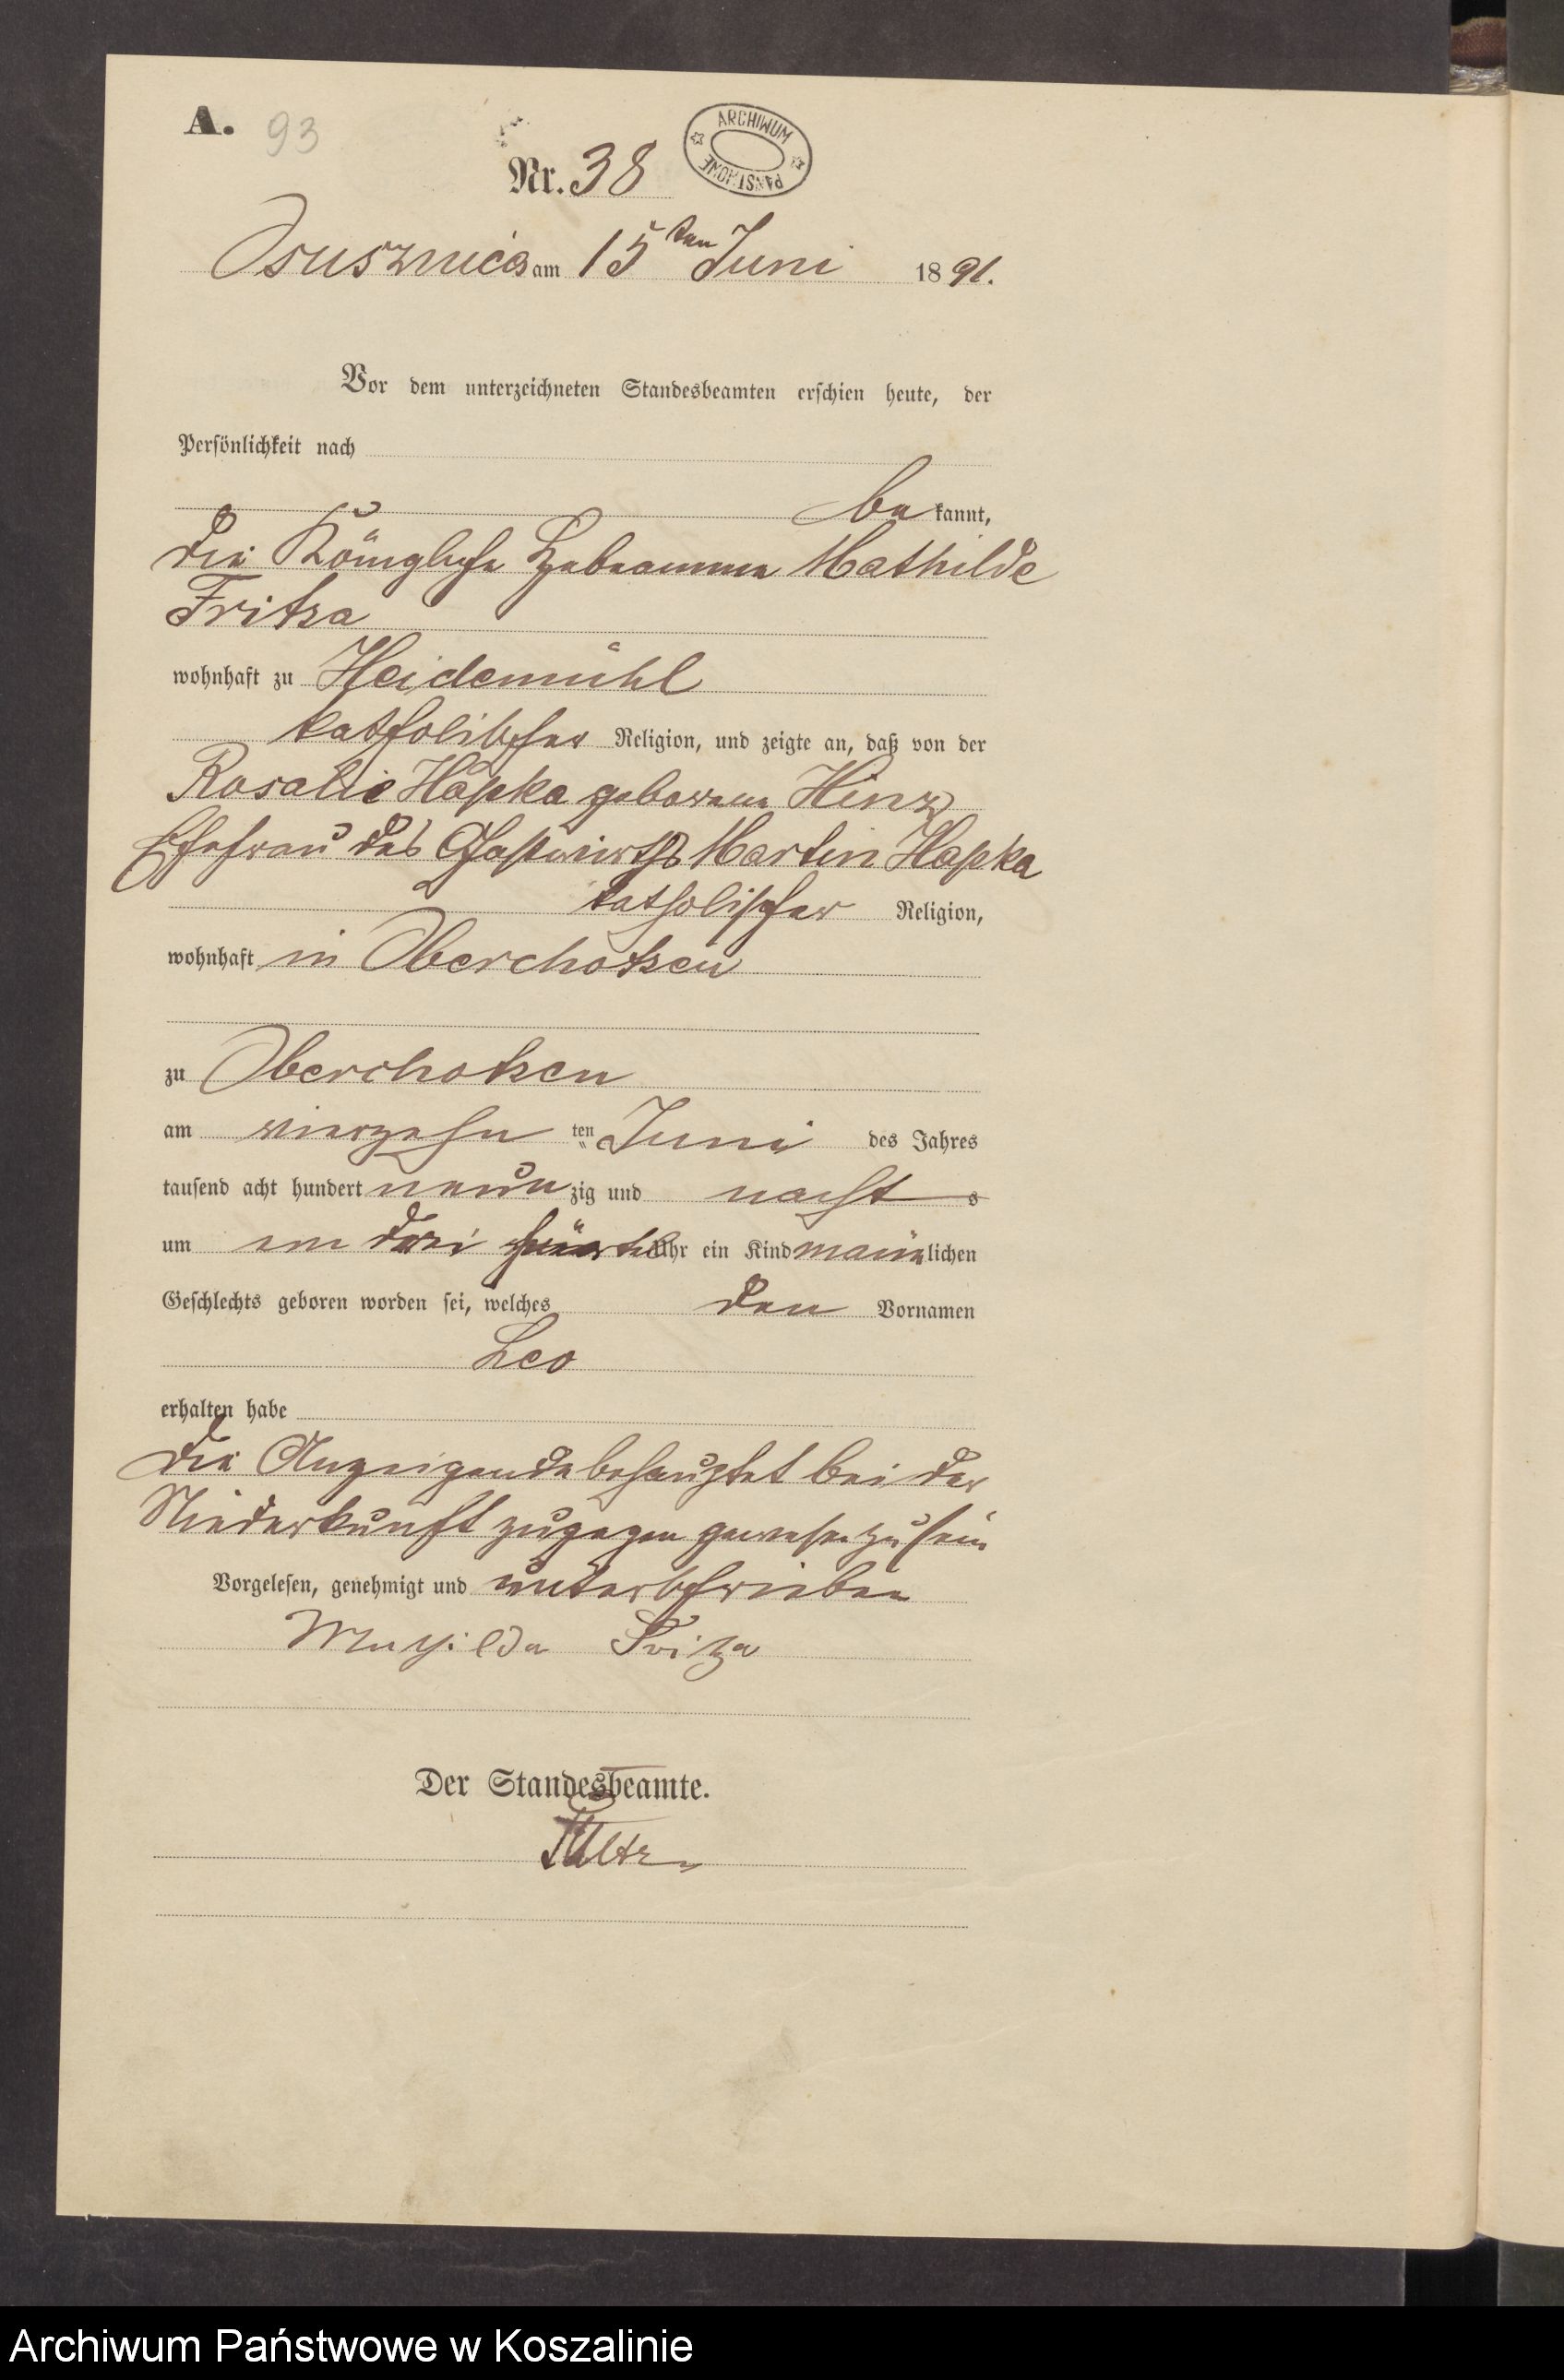 A. 93
ARCHIWUM PAŃSTWOWE
Nr. 38
Osusznica am 15ten Juni 1891.
Vor dem unterzeichneten Standesbeamten erschien heute, der
Persönlichkeit nach
bekannt,
die Königliche Hebeamme Mathilde
Fritza
wohnhaft zu Heidemühl
katholischer Religion, und zeigte an, daß von der
Rosalie Hapka geborene Hinz
Ehefrau des Gastwirths Martin Hapka
katholischer Religion,
wohnhaft in Oberchotzen
zu Oberchotzen
am vierzehn ten Juni des Jahres
tausend acht hundert neunzig und nachts
um um drei Uhr ein Kind männlichen
Geschlechts geboren worden sei, welches den Vornamen
Leo
erhalten habe
die Anzeigende behauptet bei der
Niederkunft zugegen gewesen zu sein
Vorgelesen, genehmigt und unterschrieben
Mathilda Fritza
Der Standesbeamte.
Archiwum Państwowe w Koszalinie